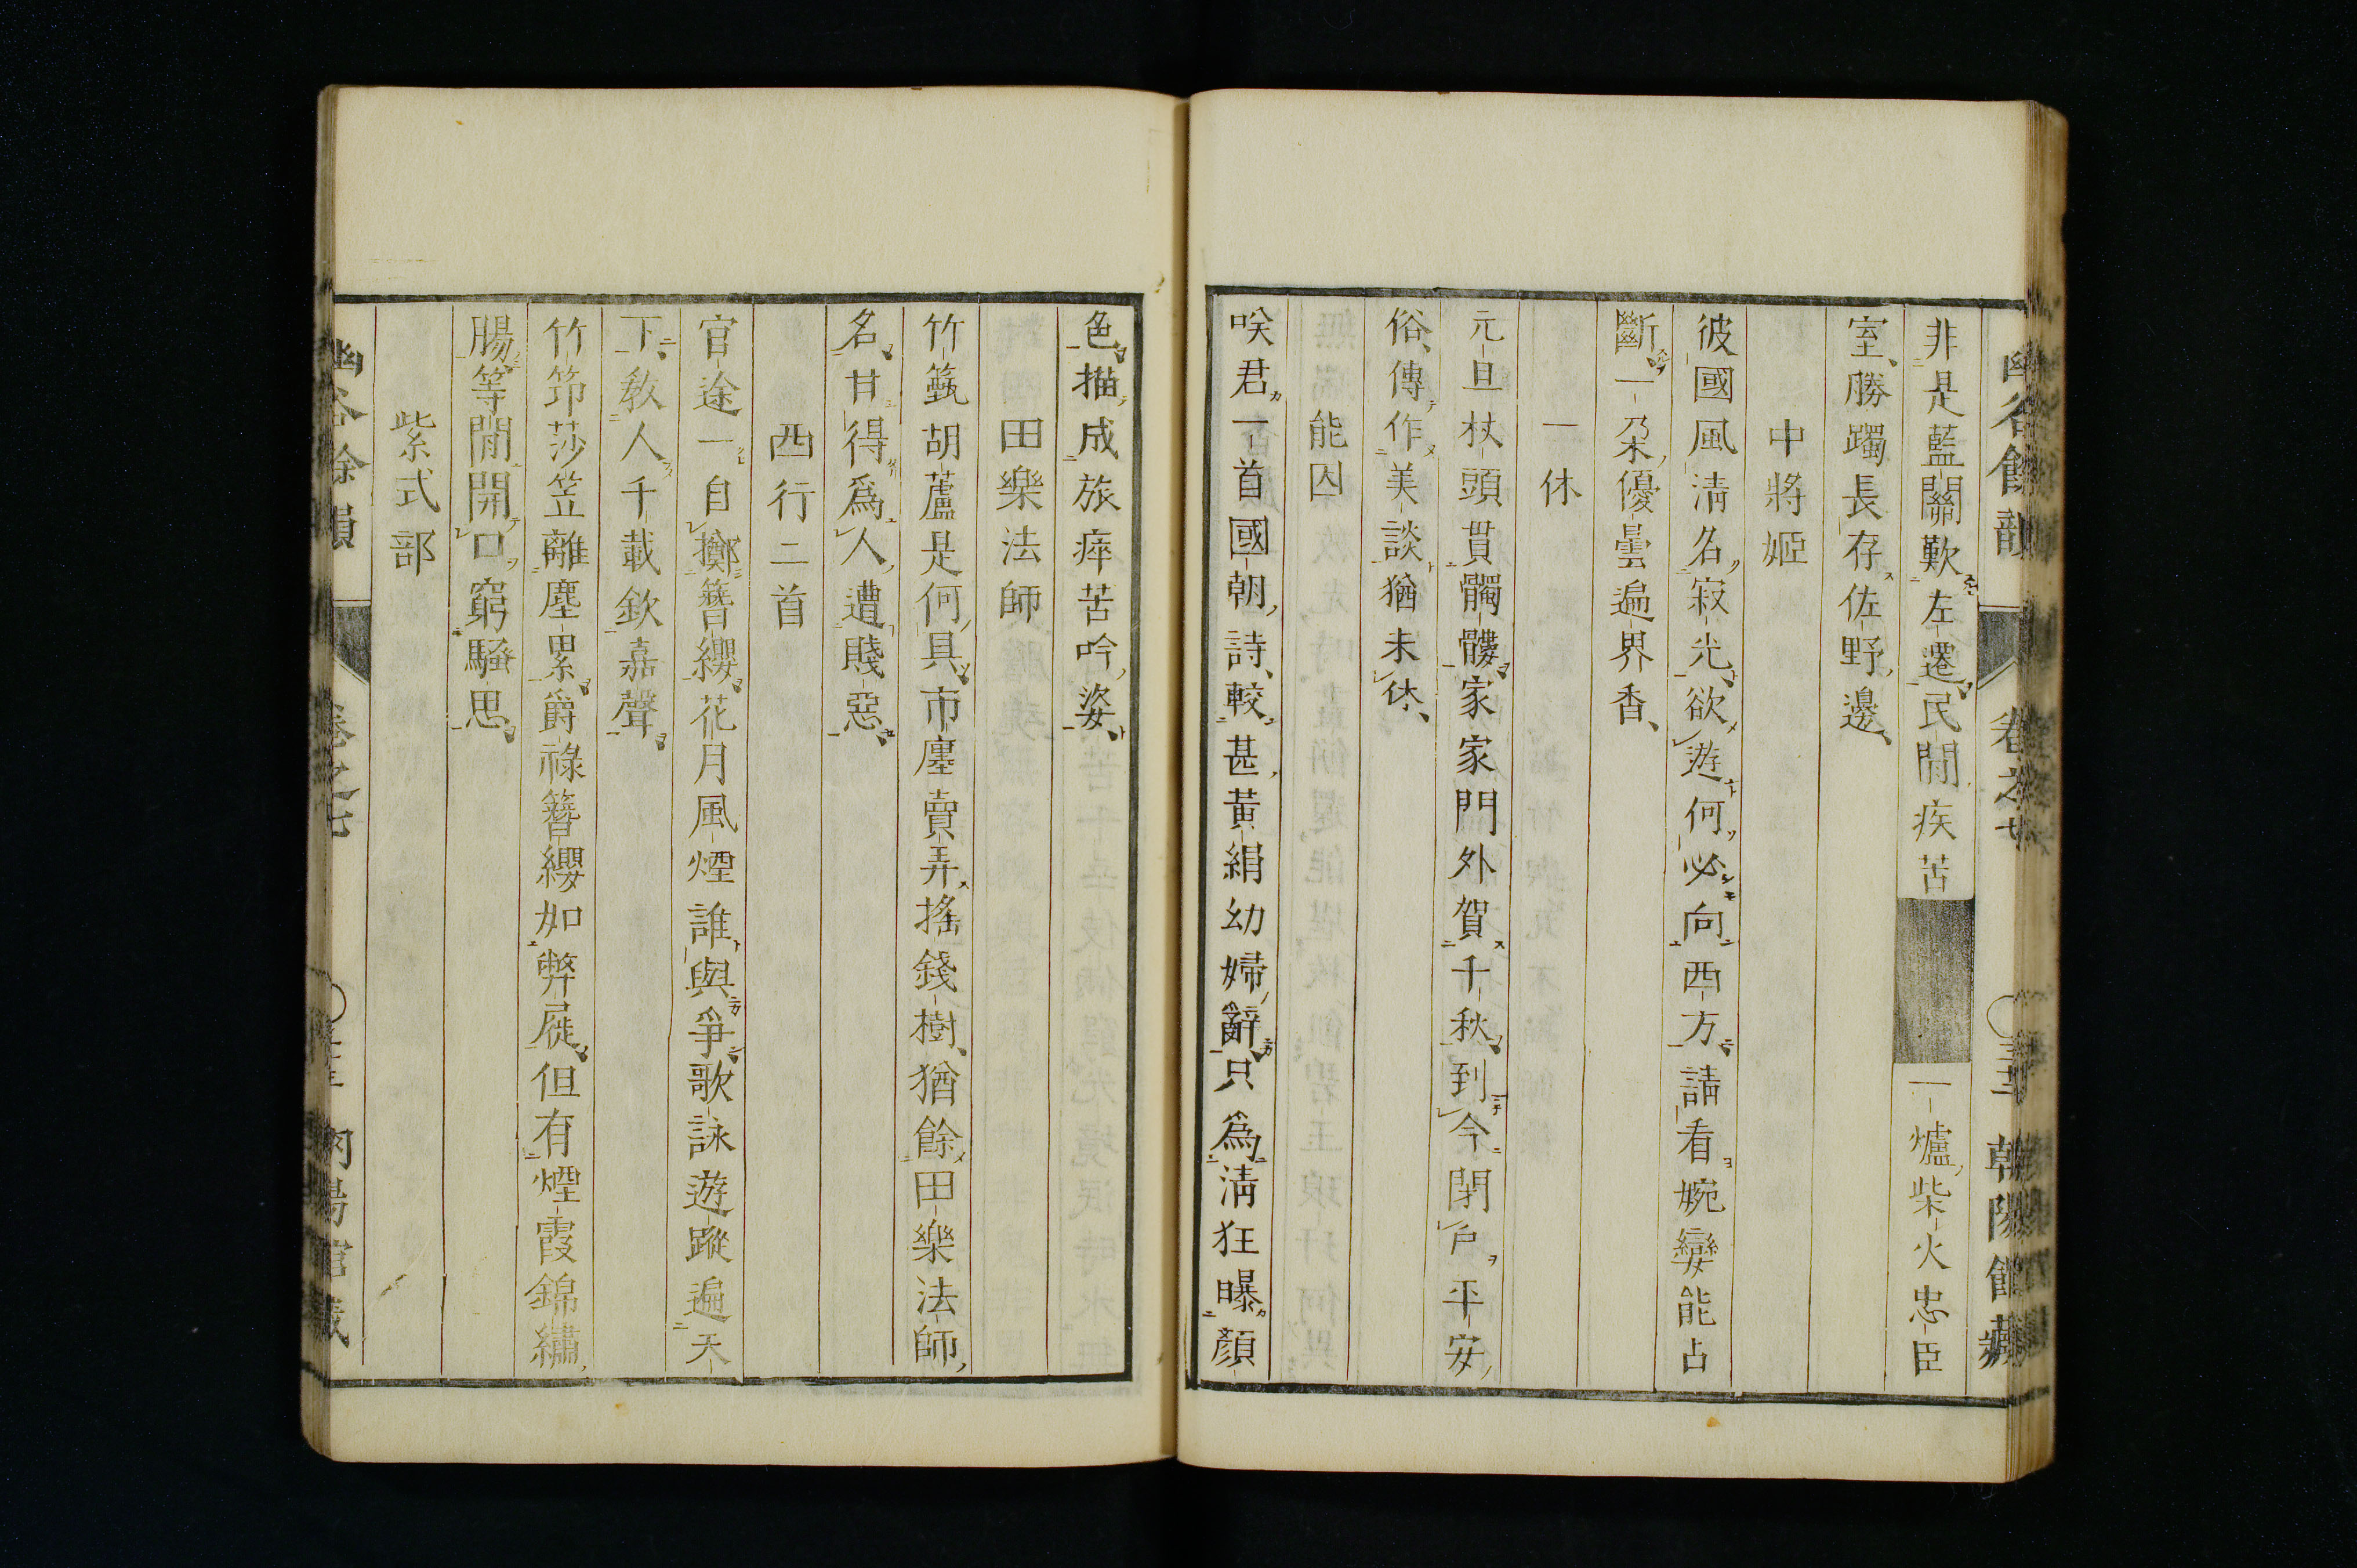 非是藍關歎左遷民間疾苦一爐柴火忠臣
室勝躅長存佐野邊
中將姬
彼國風淸名寂光欲遊何必向西方請看婉孌能占
斷一朶優曇遍界香
一休
元旦杖頭貫髑髏家家門外賀千秋到今閉戶平安
俗傳作美談猶未休
能因
咲君一首國朝詩較甚黃絹幼婦辭只爲淸狂曝顏
色描成旅瘁苦吟姿
田樂法師
竹甑胡蘆是何具市廛賣弄搖錢樹猶餘田樂法師
名甘得爲人遭賤惡
西行二首
官途一自擲簪纓花月風煙誰與爭歌詠遊蹤遍天
下敎人千載欽嘉聲
竹笻莎笠離塵累爵祿簪纓如弊屣但有煙霞錦繡
腸等閒開口窮騷思
紫式部